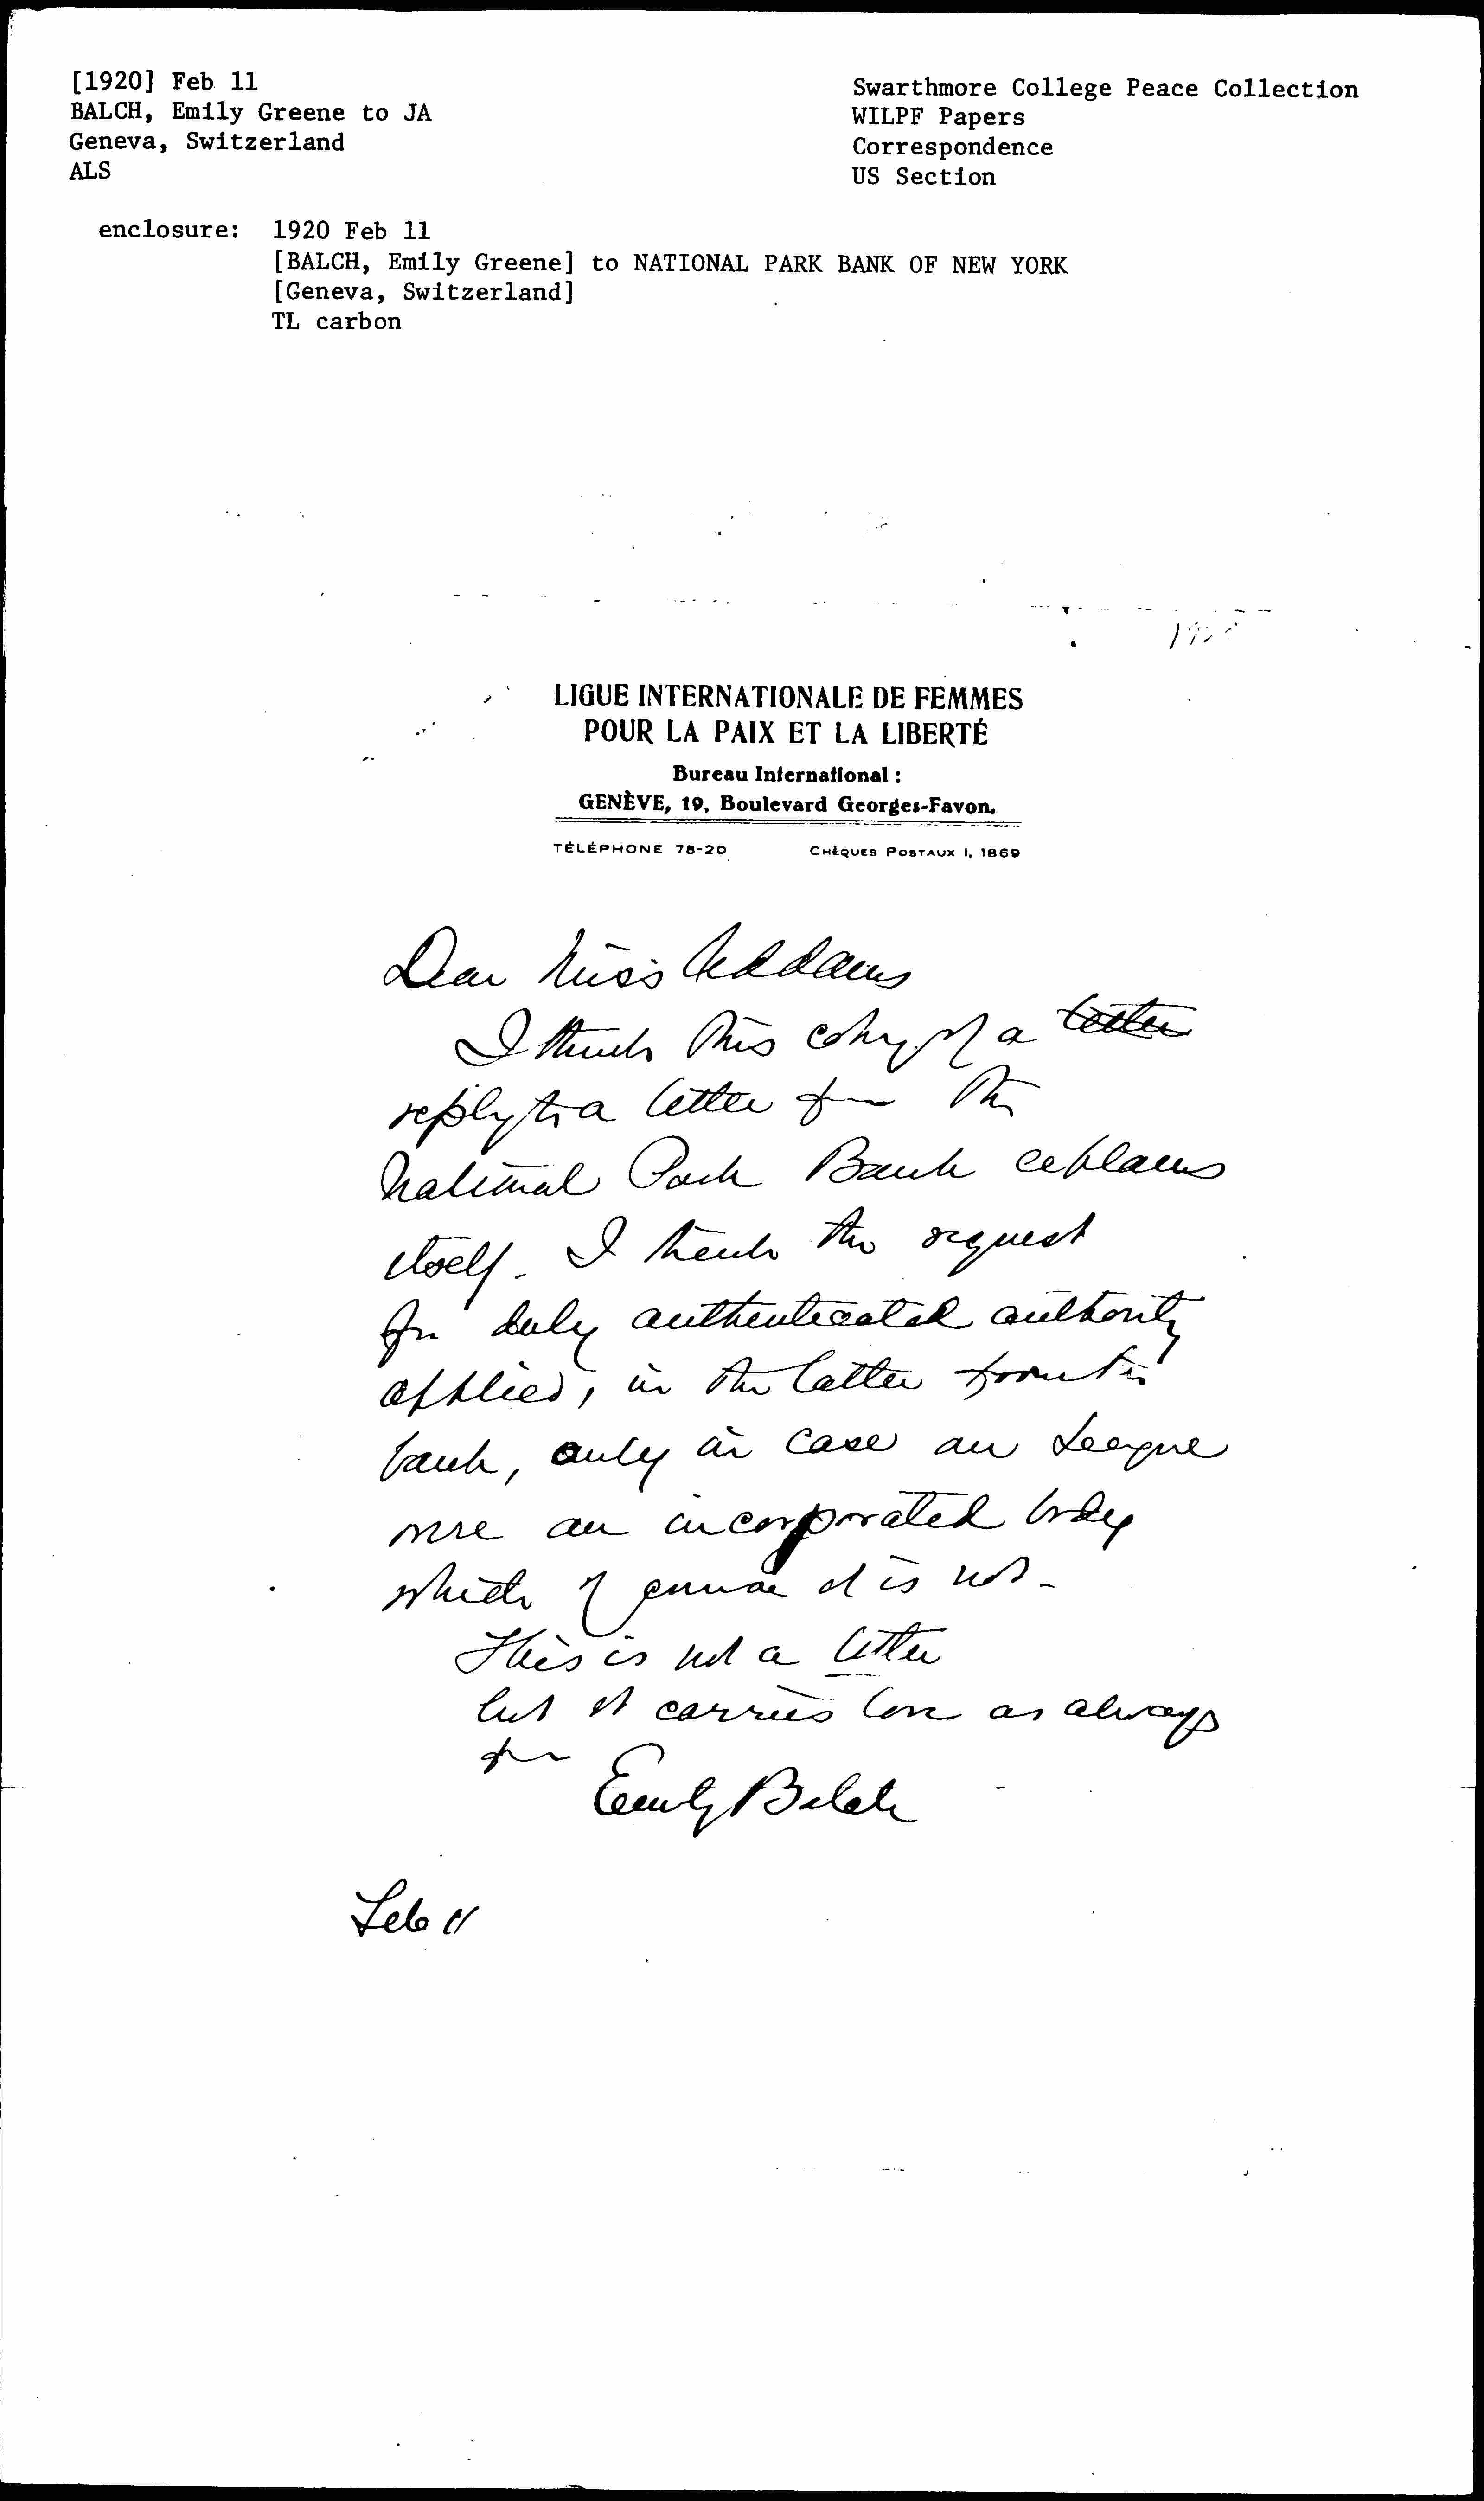 [1920] Feb 11
BALCH, Emily Greene to JA
Geneva, Switzerland
ALS
Swarthmore College Peace Collection
WILPF Papers
Correspondence
US Section
enclosure: 1920 Feb 11
[BALCH, Emily Greene] to NATIONAL PARK BANK OF NEW YORK
[Geneva, Switzerland]
TL carbon
LIGUE INTERNATIONALE DE FEMMES
POUR LA PAIX ET LA LIBERTÉ
Bureau International :
GENÈVE, 19, Boulevard Georges-Favon.
TÉLÉPHONE 78-20 CHÈQUES POSTAUX I, 1869
Dear Miss Addams
I think this copy of a letter
reply to a letter from the
National Park Bank explains
itself. I think the request
for duly authenticated authority
applied, in the latter from the
bank, only in case our League
were an incorporated body
which of course it is not.
This is not a letter
but it carries love as always
from
Emily Balch
Feb 11